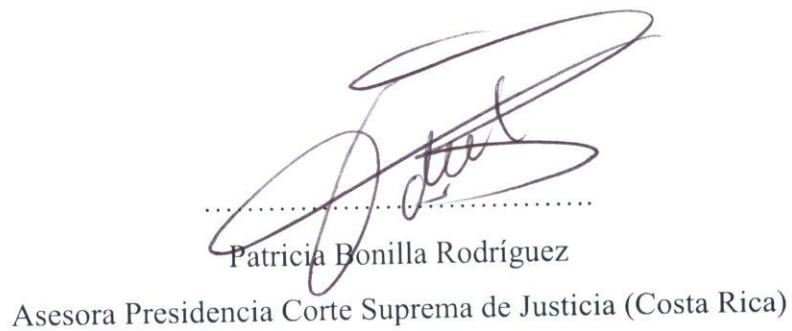 Patricia Bonilla Rodríguez
Asesora Presidencia Corte Suprema de Justicia (Costa Rica)